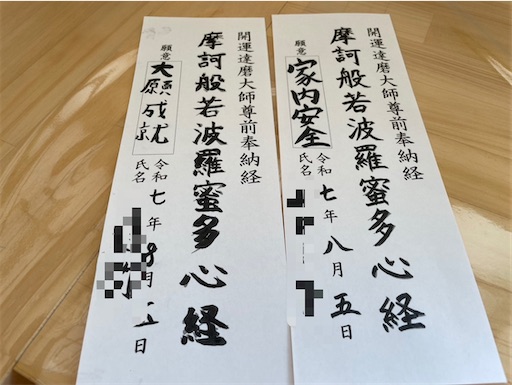 開運達磨大師尊前奉納経
摩訶般若波羅蜜多心経
願意 家内安全
令和七年八月五日
氏名
開運達磨大師尊前奉納経
摩訶般若波羅蜜多心経
願意 大願成就
令和七年8月五日
氏名